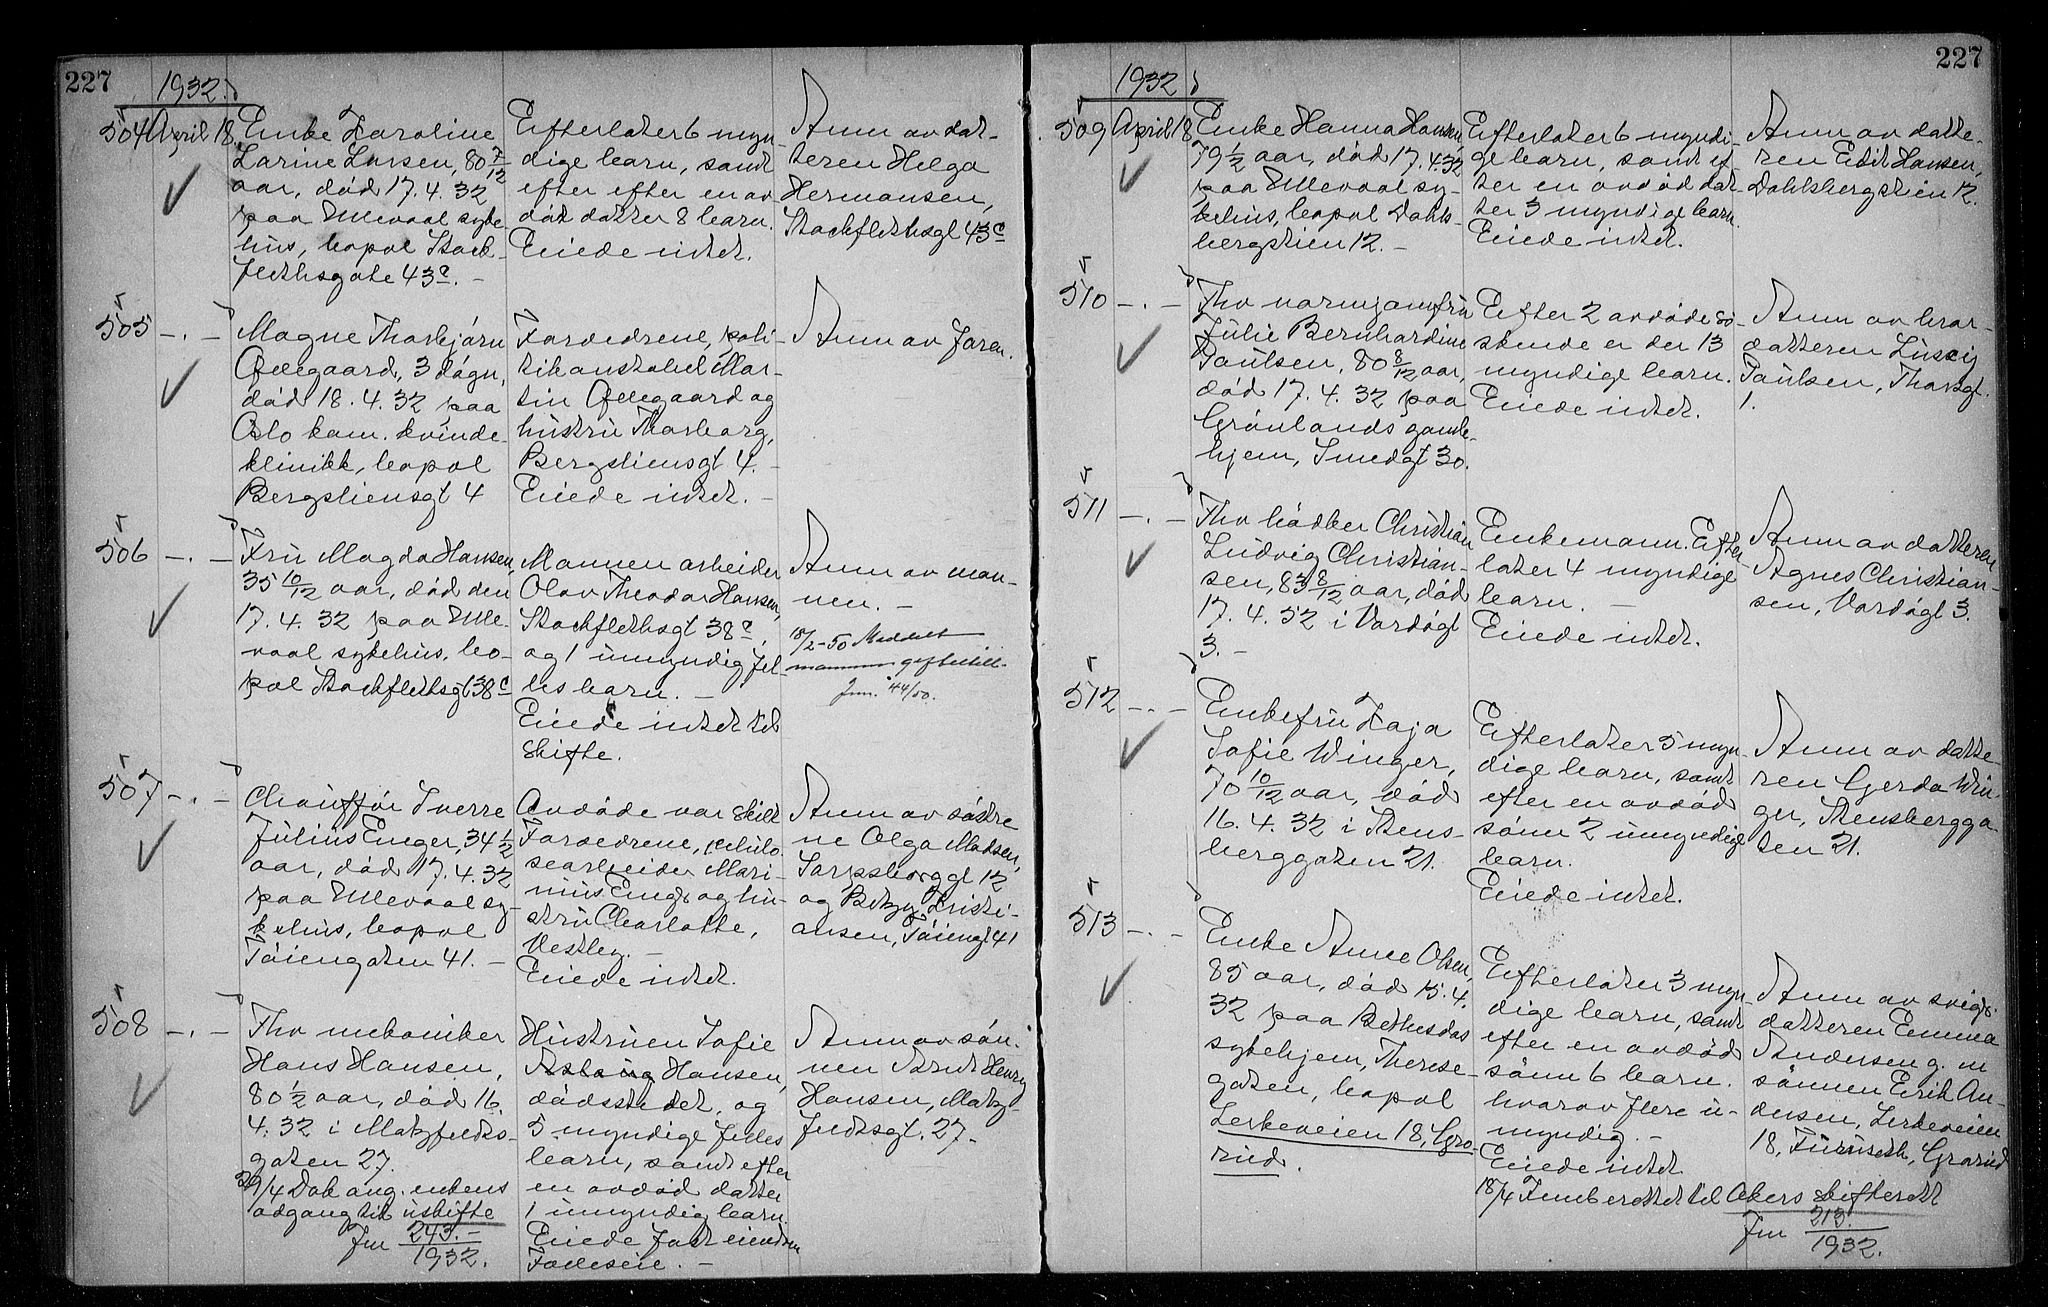 227
1932.
504 April 18. Enke Karoline
Larine Larsen, 80 7/12
aar, død 17.4.32
paa Ullevaal syke-
hus, bopol Stock-
flethsgate 43c. -
Efterlater 6 myn-
dige barn, samt
efter efter en av
død datter 8 barn.
Eiede intet.
Anm av dat-
teren Helga
Hermansen,
Stockflethsgt 43c
505 -.- Magne Thorbjørn
Ødegaard, 3 døgn,
død 18.4.32 paa
Oslo kom. kvinde-
klinikk, bopol
Bergsliensgt 4
Forældrene, poli-
tikonstabel Mar-
tin Ødegaard og
hustru Thorborg,
Bergsliensgt 4. -
Eiede intet. -
Anm av faren.
506 -.- Fru Magda Hansen,
35 10/12 aar, død den
17.4.32 paa Ulle-
vaal sykehus, bo-
pol Stockflethsgt 38c
Mannen arbeider
Olav Theodor Hansen,
Stockflethsgt 38c,
og 1 umyndig fel-
les barn. -
Eiede intet til
skifte.
Anm av man-
nen. -
18/2-50 Meddelt
mannen gifte till.
Jnr. 44/50.
507 -.- Chauffør Sverre
Julius Enger, 34 1/2
aar, død 17.4.32
paa Ullevaal sy-
kehus, bopol
Tøiengaten 41. -
Avdøde var skilt
Forældrene, cellulo-
searbeider Mari-
nius Enger og hu-
stru Charlotte,
Vestby. -
Eiede intet.
Anm av søstre
ne Olga Madsen,
Sarpsborggt 12
og Betzy Kristi-
ansen, Tøiengt 41
508 -.- Fhv mekaniker
Hans Hansen,
80 1/2 aar, død 16.
4.32 i Matzfeldts-
gaten 27.
29/4 Dok ang. enkens
adgang til uskifte
Jnr 243.-
1932.
Hustruen Sofie
Aslaug Hansen,
dødsstedet, og
5 myndige felles
barn, samt efter
en avdød datter
1 umyndig barn.
Eiede fast eiendom
Fælleseie. -
Anm av søn-
nen Arnt Henry
Hansen, Matz-
feldtsgt. 27-
227
1932
509 April 18 Enke Hanna Hansen,
79 1/2 aar, død 17.4.32
paa Ullevaal sy-
kehus, bopol Dahls-
bergstien 12. -
Efterlater 6 myndi-
ge barn, samt ef
ter en avdød dat-
ter 3 myndige barn.
Eiede intet.
Anm av datte-
ren Edit Hansen,
Dahlsbergstien 12.
510 -.- Fhv varmjomfru
Julie Bernhardine
Paulsen, 80 8/12 aar,
død 17.4.32 paa
Grønlands gamle-
hjem, Smedgt 30.
Efter 2 avdøde sø-
skende er der 13
myndige barn.
Eiede intet.
Anm av bror-
datteren Lussij
Paulsen, Thorsgt.
1.
511 -.- Fhv bødker Christian
Ludvig Christian-
sen, 83 8/12 aar, død
17.4.32 i Vardøgt
3. -
Enkemann. Efter
later 4 myndige
barn. -
Eiede intet.
Anm av datteren
Agnes Christian-
sen, Vardøgt 3.
512 -.- Enkefru Kaja
Sofie Winger,
70 10/12 aar, død
16.4.32 i Stens-
berggaten 21.
Efterlater 5 myn-
dige barn, samt
efter en avdød
sønn 2 umyndige
barn.
Eiede intet.
Anm av datte
ren Gerda Win-
ger, Stensbergga-
ten 21.
513 -.- Enke Anne Olsen,
85 aar, død 15.4.
32 paa Bethesdas
sykehjem, Therese-
gaten, bopol
Lerkeveien 18, Gro-
rud.
Efterlater 3 myn-
dige barn, samt
efter en avdød
sønn 6 barn.
hvorav flere u-
myndig. -
Eiede intet
Anm av sviger-
datteren Emma
Andersen g. m
sønnen Erik An-
dersen, Lerkeveien
18, Furuseth, Grorud
18/4 Innberettet til Akers skifterett
Jnr 213.
1932.